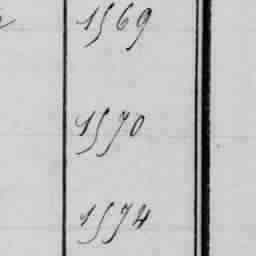 1569
1570
1574